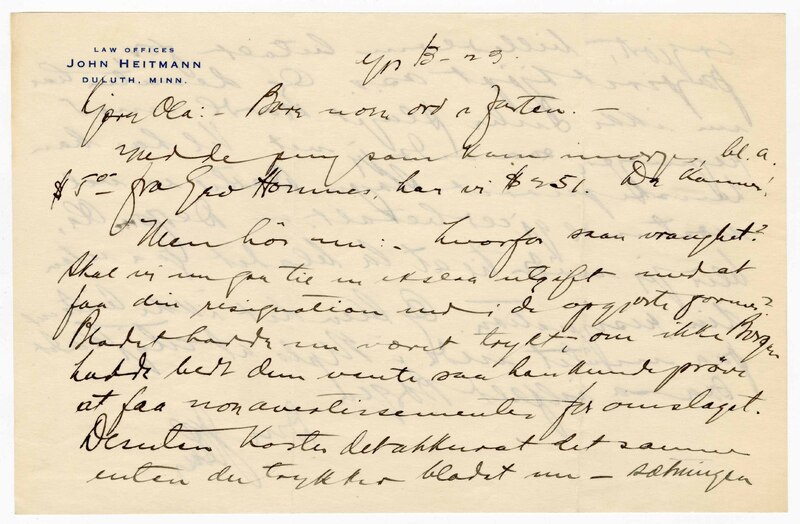 LAW OFFICES
JOHN HEITMANN
DULUTH, MINN.
Kjære Ola: - Bare noen ord i farten. -
Med de peng som kom imorges, bl. a.
$5.00 fra Geo Hommes, har vi $251. De kommer!
Men hör nu: - hvorfor saan vranghet?
Skal vi nu gaa til en extra utgift med at
faa din resignation ned i de opgjorte former?
Bladet hadde nu været trykt, om ikke Borgen
hadde bedt dem vente saa han kunde pröve
at faa non avertissementer for omslaget.
Desuten koster det akkurat det samme
enten du trykker bladet nu - sætningen